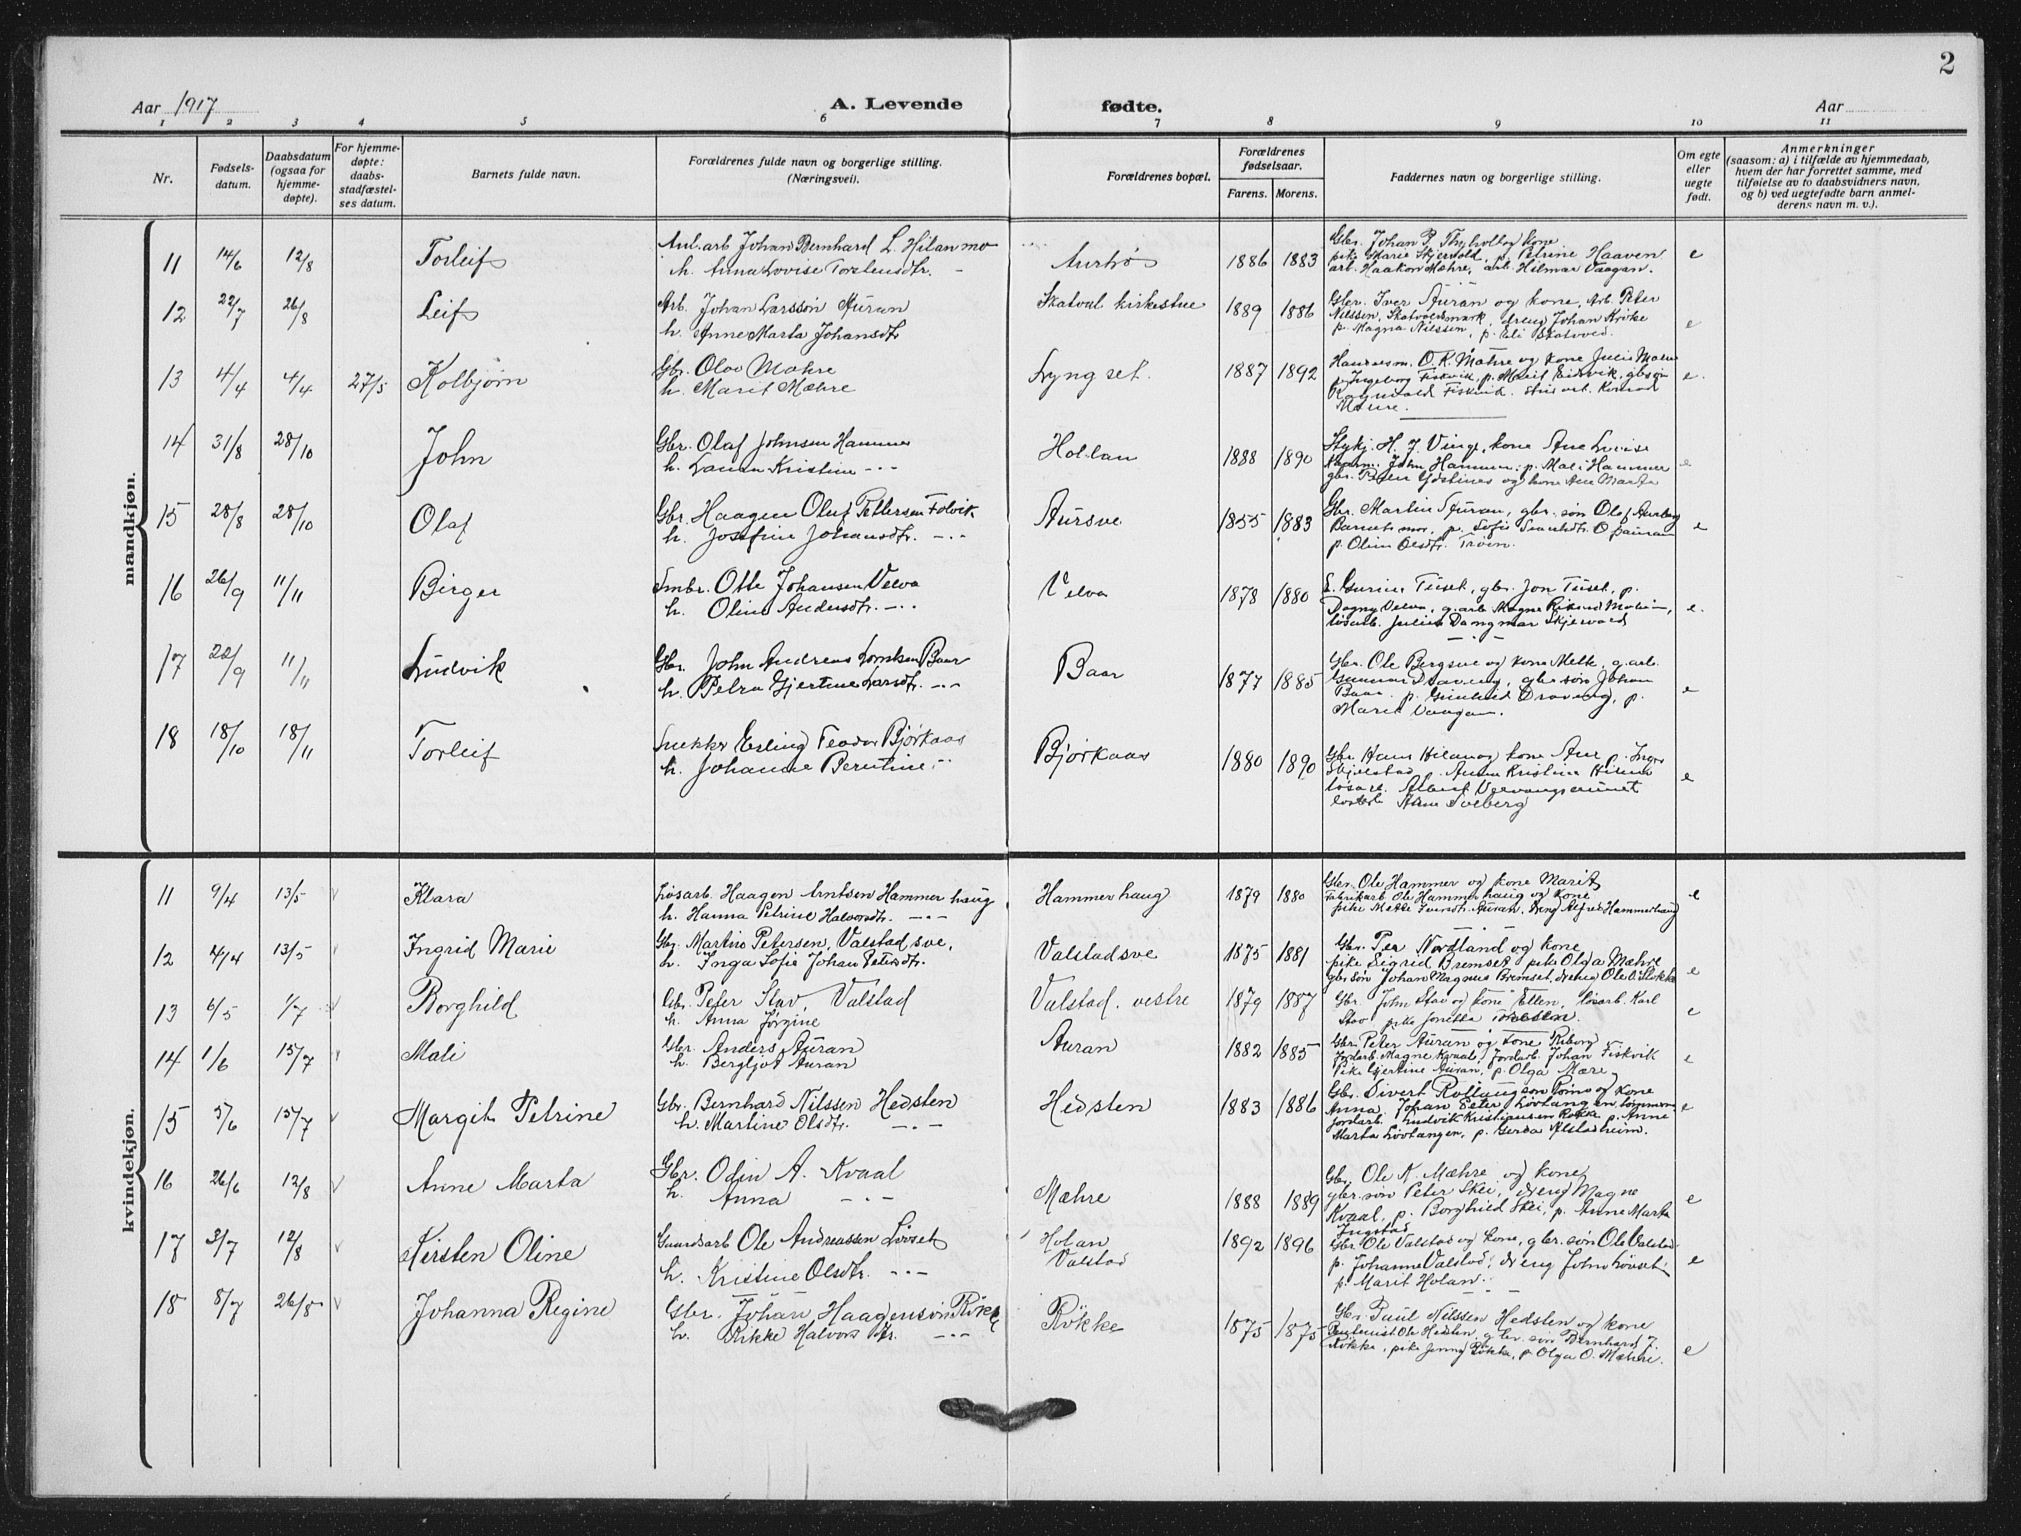 2
Aar 1917
A. Levende
fødte.
Aar
1 2 3 4 5 6 7 8 9 10 11
Nr.
Fødsels-
datum.
Daabsdatum
(ogsaa for
hjemme-
døpte).
For hjemme-
døpte:
daabs-
stadfæstel-
ses datum.
Barnets fulde navn.
Forældrenes fulde navn og borgerlige stilling.
(Næringsvei).
Forældrenes bopæl.
Forældrenes
fødselsaar.
Farens. Morens.
Faddernes navn og borgerlige stilling.
Om egte
eller
uegte
født.
Anmerkninger
(saasom: a) i tilfælde av hjemmedaab,
hvem der har forrettet samme, med
tilføielse av to daabsvidners navn,
og b) ved uegtefødte barn anmel-
derens navn m. v.).
mandkjøn.
11 14/6 12/8 Torleif
Anl.arb Johan Bernhard L. Hilanmo
h. Anna Lovise
1886 1883
Gbr. Johan P. kone
pike Marie p. Petrine Haaven
arb. Haakon Mæhre, arb. Hilmar Vaagan.
e
12 22/7 26/8 Leif
Arb. Johan Larssøn Auran
h. Anne Marta Johansdtr
Skatval kirkestue
1889 1886
Gbr. Iver Auran og kone, Arb. Peter
Nilssen, Skatvoldsmark, dreng Johan
p. Magna Nilssen, p. Eli
e
13 4/4 4/4 27/5 Kolbjørn
Gbr. Olav Mæhre
h. Marit Mæhre
Lyngset.
1887 1892
O. K. Mæhre og kone Julie
p. Ingeborg Fiskvik, p. Marit Eidsvik, gbsøn
Fiskvik. arb. Konrad
Mæhre.
e.
14 31/8 28/10 John
Gbr. Olaf Johnsen Hammer
h. Laura Kristine -·-
Hollan
1888 1890
H. J. Vinge, kone Ane Lovise
John Hammer, p. Mali Hammer
gbr. og kone Ane Marta
e
15 28/8 28/10 Olaf
Gbr. Haagen Oluf Pettersen
h. Josefine Johansdtr. -·-
Aursve
1855 1883
Gbr. Martin Auran, gbr. søn Olaf
Barnets mor, p. Sofie
p. Oline Olsdtr. Trøen.
e
16 26/9 11/11 Birger
Smbr. Otte Johansen Velva
h. Oline Andersdtr. -·-
Velva
1878 1880
E. Gurine Tuset, gbr. Jon Tuset, p.
Dagny Velva, g.arb. Magne
løsarb. Julius Dangmar Skjervold
e.
17 22/9 11/11 Ludvik
Gbr. John Andreas Baar
h. Petra Gjertine Larsdtr. -·-
Baar
1877 1885
Gbr. Ole Bergsve og kone Mette, g.arb.
Gunnar Draveng, gbr søn Johan
Baar, p. Draveng, p.
Marit Vaagan.
e
18 18/10 18/11 Torleif
Snekker Erling Teodor Bjørkaas
h. Johanne Berntine -·-
Bjørkaas
1880 1890
Gbr. Hans og kone Ane p. Inger
Anna Kristine
løsarb. Albert
Anne Solberg
e
kvindekjøn.
11 9/4 13/5 Klara
Løsarb. Haagen Arntsen Hammerhaug
h. Hanna Petrine Halvorsdtr. -·-
Hammerhaug
1879 1880
Gbr. Ole Hammer og kone Marit
Fabrikarb Ole Hammerhaug og kone
pike Mette Auran. Dreng Alfred Hammerhaug
e
12 4/4 13/5 Ingrid Marie
Gbr. Martin Petersen, Valstadsve,
h. Inga Sofie Johan Petersdtr.
Valstadsve
1875 1881
Gbr. Per Nordland og kone
pike Sigrid Bremset pike Olga Mæhre
gbr søn Johan Magnus Bremset, dreng Ole
e
13 6/5 1/7 Borghild
Gbr. Peter Stav, Valstad
h. Anna Jørgine
Valstad. vestre
1879 1887
Gbr. John Stav og kone Ellen, løsarb. Karl
Stav pike Jonetta Toresen.
e
14 1/6 15/7 Mali
Gbr. Anders Auran
h. Bergljot Auran
Auran
1882 1885
Gbr. Peter Auran og kone Riborg
Jordarb. Magne Kvaal, Jordarb. Johan Fiskvik
Pike Gjertine Auran, p. Olga Mære
e
15 5/6 15/7 Margit Petrine
Gbr. Bernhard Nilssen Hedsten
h. Martine Olsdtr. -·-
Hedsten
1883 1886
Gbr. Sivert og kone
Anna, Johan Peter Løvtangen
jordarb. Ludvik Kristiansen Røkke p. Anne
Marta Løvtangen, p. Gerda Alstadheim.
e
16 26/6 12/8 Anne Marta
Gbr. Odin A. Kvaal
h. Anna -·-
Mæhre
1888 1889
Gbr. Ole K. Mæhre og kone
gbr. søn Peter Skei, dreng Magne
Kvaal, p. Borghild Skei, p. Anne Marta
Ingstad
e
17 3/7 12/8 Kirsten Oline
Gaardsarb Ole Andreassen Løvset
h. Kristine Olsdtr. -·-
Holan
Valstad
1892 1896
Gbr. Ole Valstad og kone, gbr. søn Ole Valstad
p. Johanne Valstad, dreng John Løvset
p. Marit Holan.
e
18 8/7 26/8 Johanna Regine
Gbr. Johan Haagensøn Røkke
h. Rikke Halvorsdtr. -·-
Røkke
1875 1875
Gbr. Paul Nilssen Hedsten og kone
Ole Hedsten, gbr. søn Bernhard J.
Røkke, pike Jenny Røkke, p. Olga O. Mæhre.
e